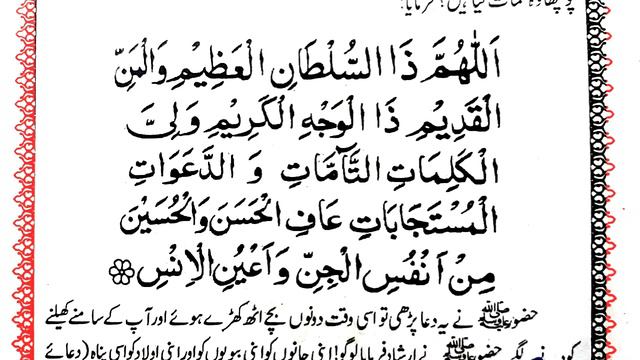 اَللّٰهُمَّ ذَا السُّلْطَانِ الْعَظِيْمِ وَالْمَنِّ
الْقَدِيْمِ ذَا الْوَجْهِ الْكَرِيْمِ وَلِيَّ
الْكَلِمَاتِ التَّآمَّاتِ وَ الدَّعَوَاتِ
الْمُسْتَجَابَاتِ عَافِ الْحَسَنَ وَالْحُسَيْنَ
مِنْ اَنْفُسِ الْجِنِّ وَ اَعْيُنِ الْاِنْسِ
حضور ﷺ نے یہ دعا پڑھی تو اسی وقت دونوں بچے اٹھ کھڑے ہوئے اور آپ کے سامنے کھیلنے
کودنے لگے حضور ﷺ نے ارشاد فرمایا لوگو! اپنی جانوں کو اپنی بیویوں کو اور اپنی اولاد کو اسی پناہ (دعا کے